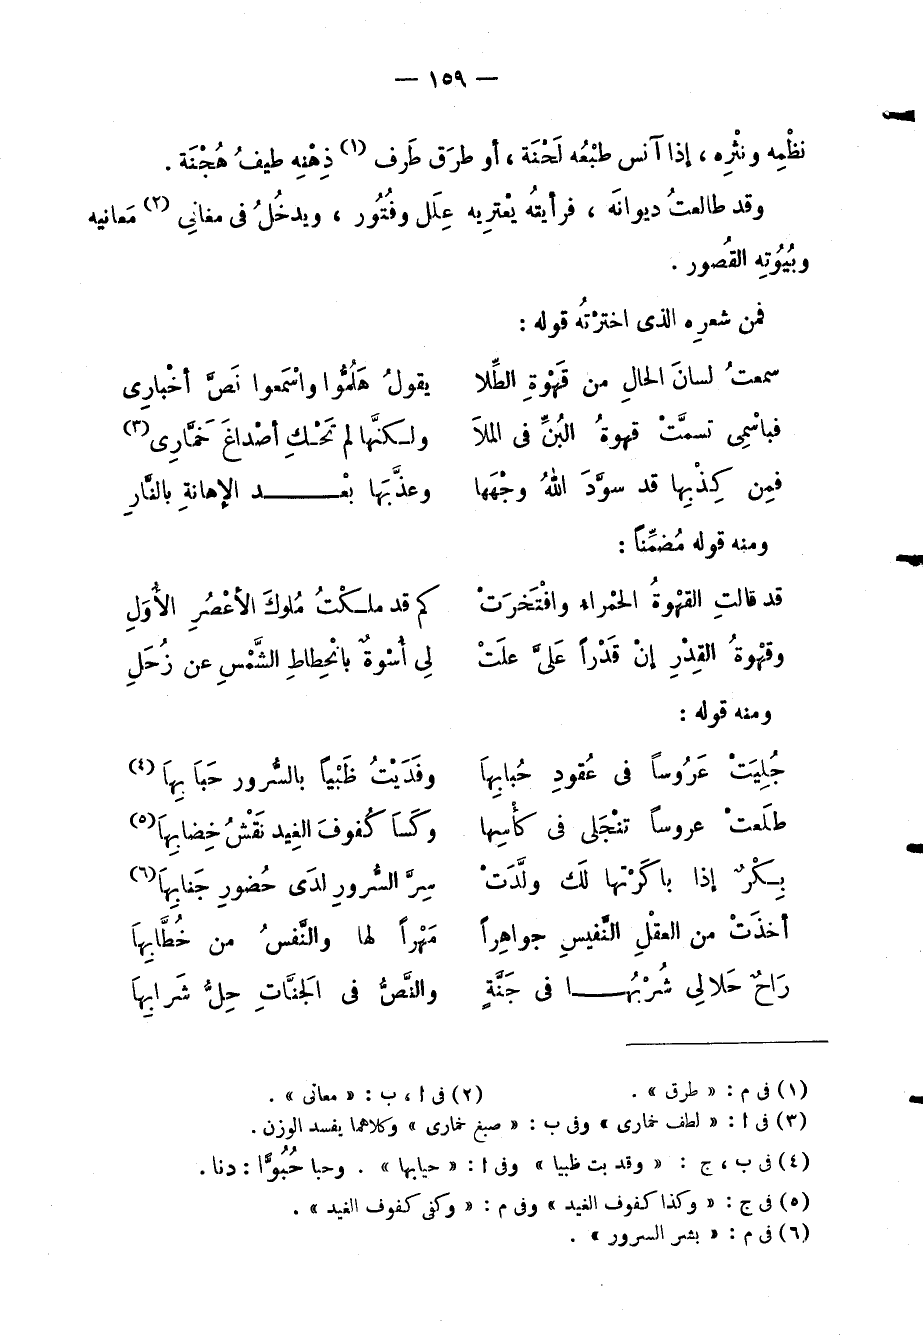 — ١٥٩ —
نظْمِه ونثْرِه ، إذا آنس طبْعُه لَحْنَة ، أو طرَق طَرف (١) ذِهْنِه طيفُ هُجْنَة .
وقد طالعتُ ديوانَه ، فرأيتهُ يعْترِيه عِلَل وفُتُور ، ويدخُلُ فى مغانِى (٢) مَعانيه
وبُيُوتِه القُصور .
فمن شعرِه الذى اخترْتهُ قوله :
سمعتُ لسانَ الحالِ من قَهْوةِ الطِّلا يقولُ هَلُمُّوا واسْمَعوا نَصَّ أخْبارِى
فباسْمِى تسمَّتْ قهوةُ البُنِّ فى الملاَ ولـكنَّها لم تَحْـكِ أصْداغَ خَمَّارِى (٣)
فمِن كِذْبِها قد سوَّدَ اللهُ وجْهَها وعذَّبَها بعْـــد الإهانةِ بالنَّارِ
ومنه قوله مُضمِّناً :
قد قالتِ القهْوةُ الحمْراء وافْتَخرَتْ كم قد ملـكْتُ مُلوكَ الأعْصُرِ الأُوَلِ
وقهْوةُ القِدْرِ إنْ قَدْراً عَلىَّ علَتْ لِى أُسْوةٌ بانْحِطاطِ الشَّمْسِ عن زُحَلِ
ومنه قوله :
جُلِيَتْ عَرُوساً فى عُقودِ حُبابِهاَ وفَدَيْتُ ظَبْياً بالسُّرور حَبَا بِهاَ (٤)
طلَعتْ عروساً تنْجَلى فى كأْسِها وكَسَا كُفوفَ الغِيد نَقْشُ خِضابِهاَ (٥)
بِـكْرٌ إذا باكَرْتَها لك ولَّدَتْ سِرَّ السُّرورِ لدَى حُضورِ جَنابِهاَ (٦)
أخذَتْ من العقْلِ النَّفيسِ جواهِراً مَهْراً لها والنَّفسُ من خُطَّابِهاَ
رَاحٌ حَلالِى شُرْبُهـــا فى جَنَّةٍ والنَّصُّ فى الجنَّاتِ حِلُّ شَرابِهاَ
(١) فى م : « طرق » . (٢) فى ا ، ب : « معانى » .
(٣) فى ا : « لطف خمارى » وفى ب : « صبغ خمارى » وكلاهما يفسد الوزن .
(٤) فى ب ، ج : « وقد بت ظبيا » وفى ا : « حيابها » . وحبا حُبُوًّا : دنا .
(٥) فى ج : « وكذا كفوف الغيد » وفى م : « وكنى كفوف الغيد » .
(٦) فى م : « بشر السرور » .